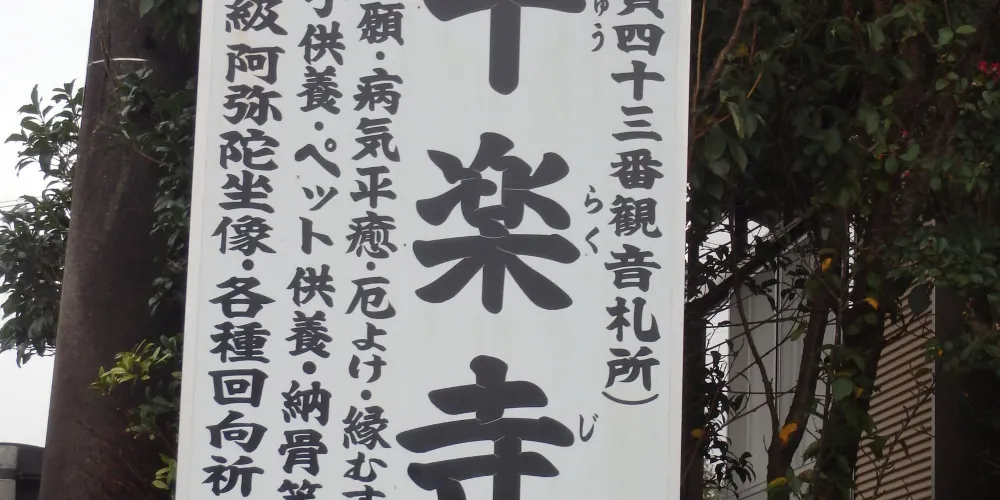 四十三番観音札所）
ゅう らく じ
楽寺
願・病気平癒・厄よけ・縁むす
供養・ペット供養・納骨
級阿弥陀坐像・各種回向祈